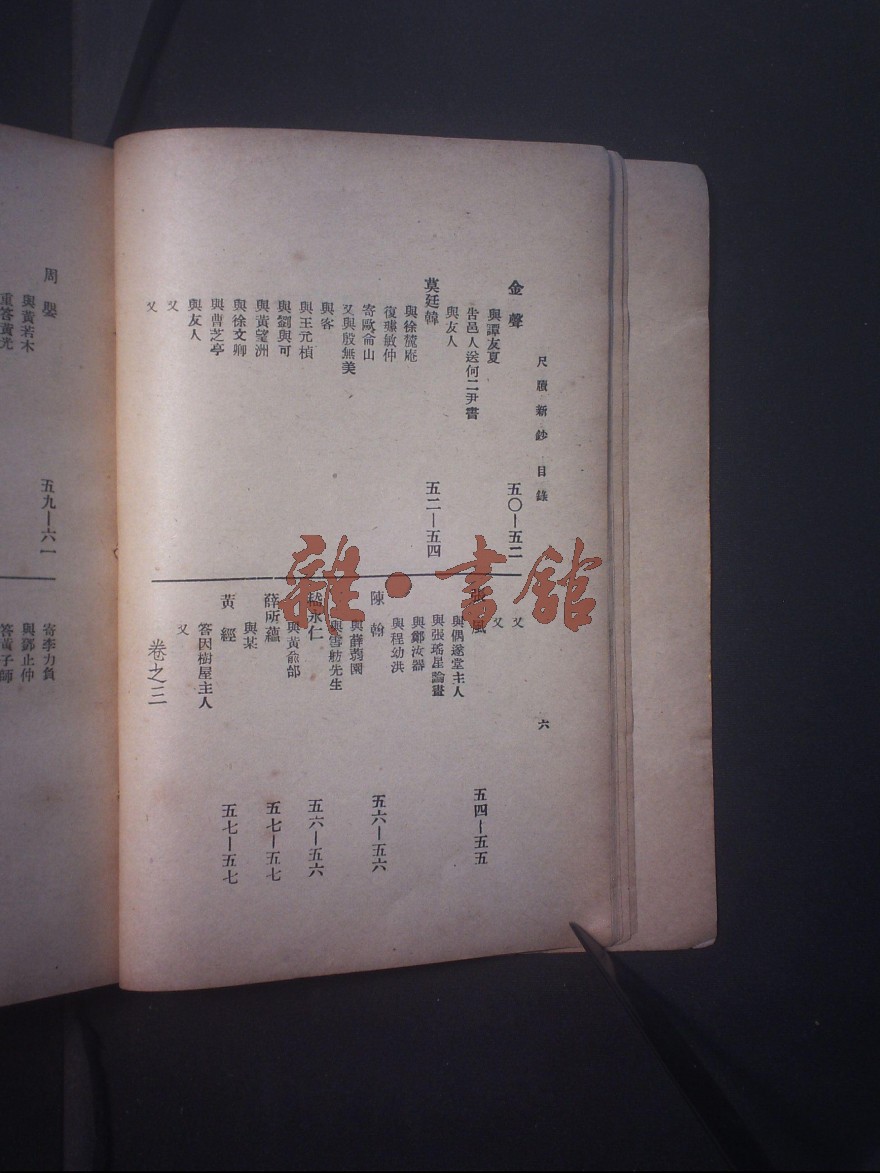 尺牘新鈔 目錄
六
金聲
五〇—五二
與譚友夏
告邑人送何二尹書
與友人
莫廷韓
五二—五四
與徐麓庵
復璩敏仲
寄歐侖山
又與殷無美
與客
與王元楨
與劉與可
與黃望洲
與徐文卿
與曹芝亭
與友人
又
又
又
又
張風
五四—五五
與偶遂堂主人
與張瑤星論畫
與鄭汝器
與程幼洪
陳翰
五六—五六
與薛蒭園
與雪舫先生
嵇永仁
五六—五六
與黃俞邰
薛所蘊
五七—五七
與某
黃經
五七—五七
答因樹屋主人
又
卷之三
周嬰
五九—六一
與黃若木
重答黃光
寄李力負
與鄧止仲
答黃子師
雜·書館